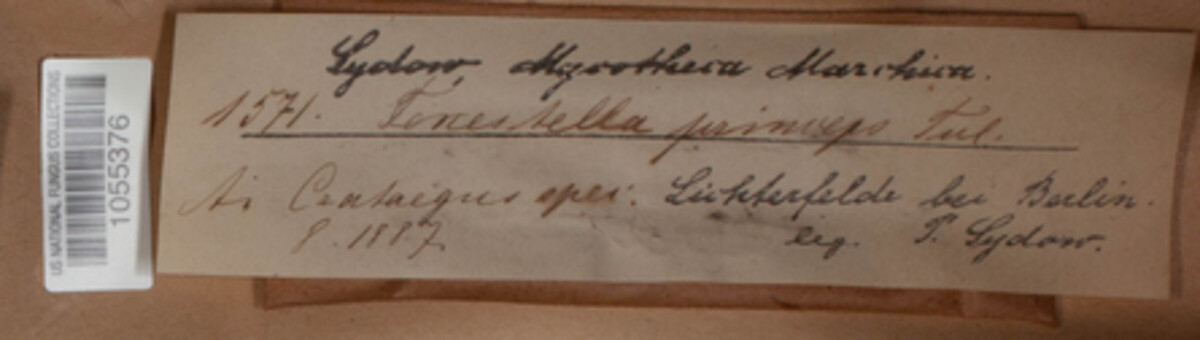 US NATIONAL FUNGUS COLLECTIONS
1055376
Sydow, Mycotheca Marchica.
1571. Torrubiella princeps Tul.
Crataegus spec. Lichterfelde bei Berlin.
8. 1887. leg. P. Sydow.